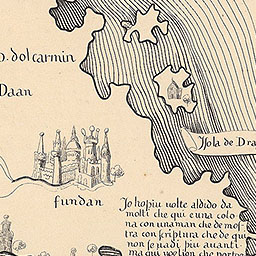 o. dolcarmin
Daan
Isola de Dra
fundan
Io ho piu uolte aldido da
molti che qui e una colo
na con una man che demos
tra con scriptura che de qui
non se uadi piu auanti
ma qui uoglion che portog